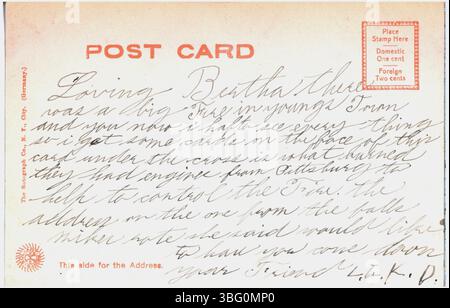 POST CARD
Place
Stamp Here
Domestic
One cent
Foreign
Two cents
The Rotograph Co., N.Y. City. (Germany.)
Loving Bertha there
was a big Fire in youngs Town
and you now i hafto see every thing
so i got some cards on the face of this
card under the cross is what burned
they had engines from Pittsburg to
help to control the Fire. the
address on the one from the falls
she said would like
to have you come down
your Friend L. K. D.
This side for the Address.
alamy
Image ID: 3BG0MP0
www.alamy.com